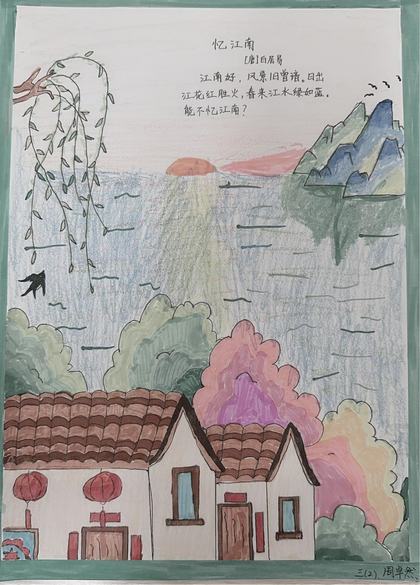 忆江南
[唐]白居易
江南好，风景旧曾谙。日出
江花红胜火，春来江水绿如蓝。
能不忆江南？
三(2)